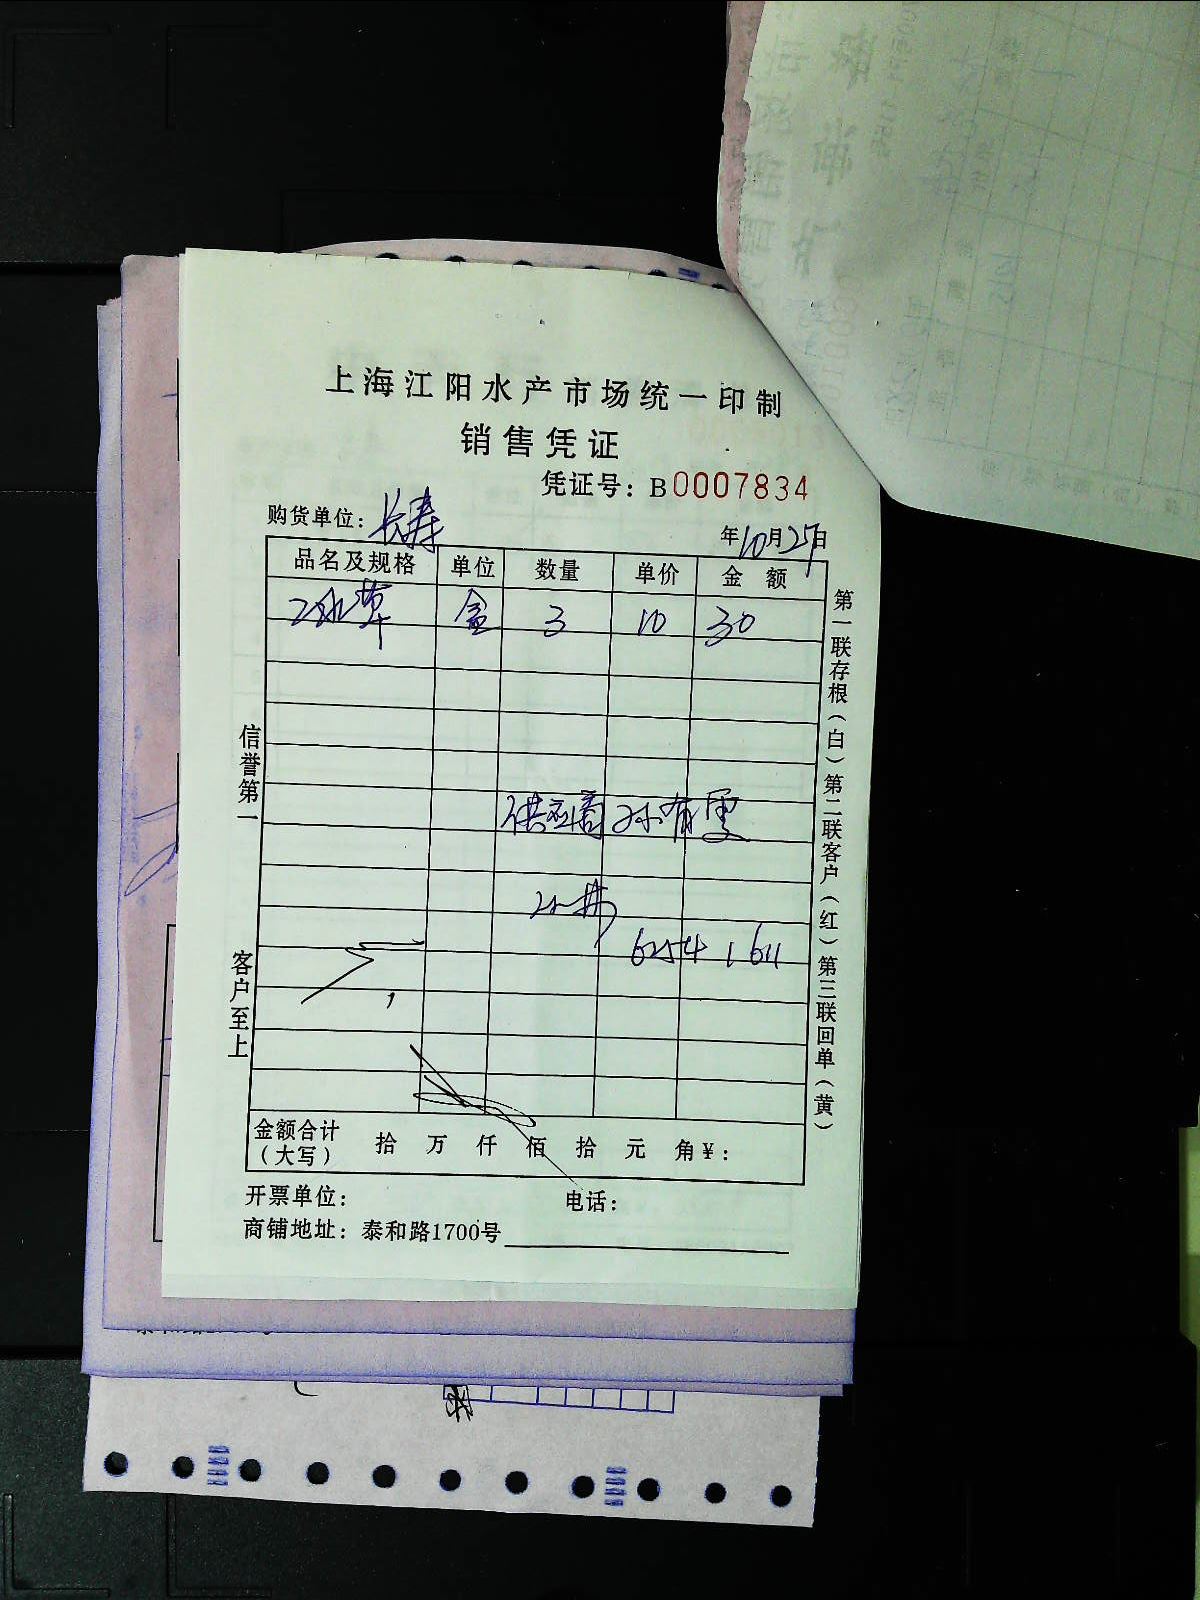 上海江阳水产市场统一印制
销售凭证
凭证号：B0007834
购货单位：长寿
年10月25日
品名及规格 单位 数量 单价 金额
冰草 盒 3 10 30
供应商 孙有雯
6254 1611
信誉第一
客户至上
第一联存根（白）第二联客户（红）第三联回单（黄）
金额合计（大写） 拾 万 仟 佰 拾 元 角¥：
开票单位： 电话：
商铺地址：泰和路1700号